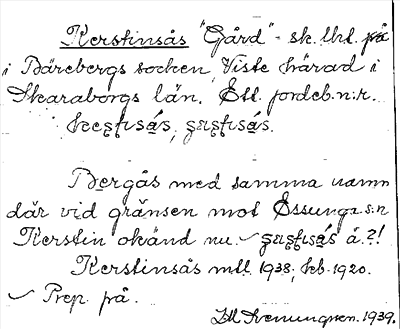 Kerstinsås "Gård" - sk. lht. på
i Bärebergs socken, Viste härad i
Skaraborgs län. Ett jordeb.n:r.
Bergås med samma namn
där vid gränsen mot Essunga s:n
Kerstin okänd nu.
Kerstinsås mtl. 1938, kb. 1920.
Prep. på.
1939.